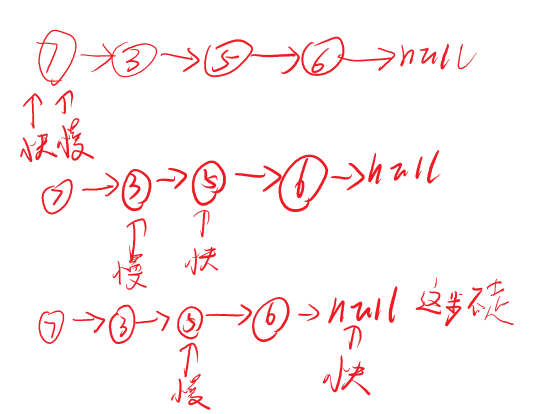 7 → 3 → 5 → 6 → null
↑ ↑
快 慢
7 → 3 → 5 → 6 → null
↑ ↑
慢 快
7 → 3 → 5 → 6 → null 这步不走
↑ ↑
慢 快